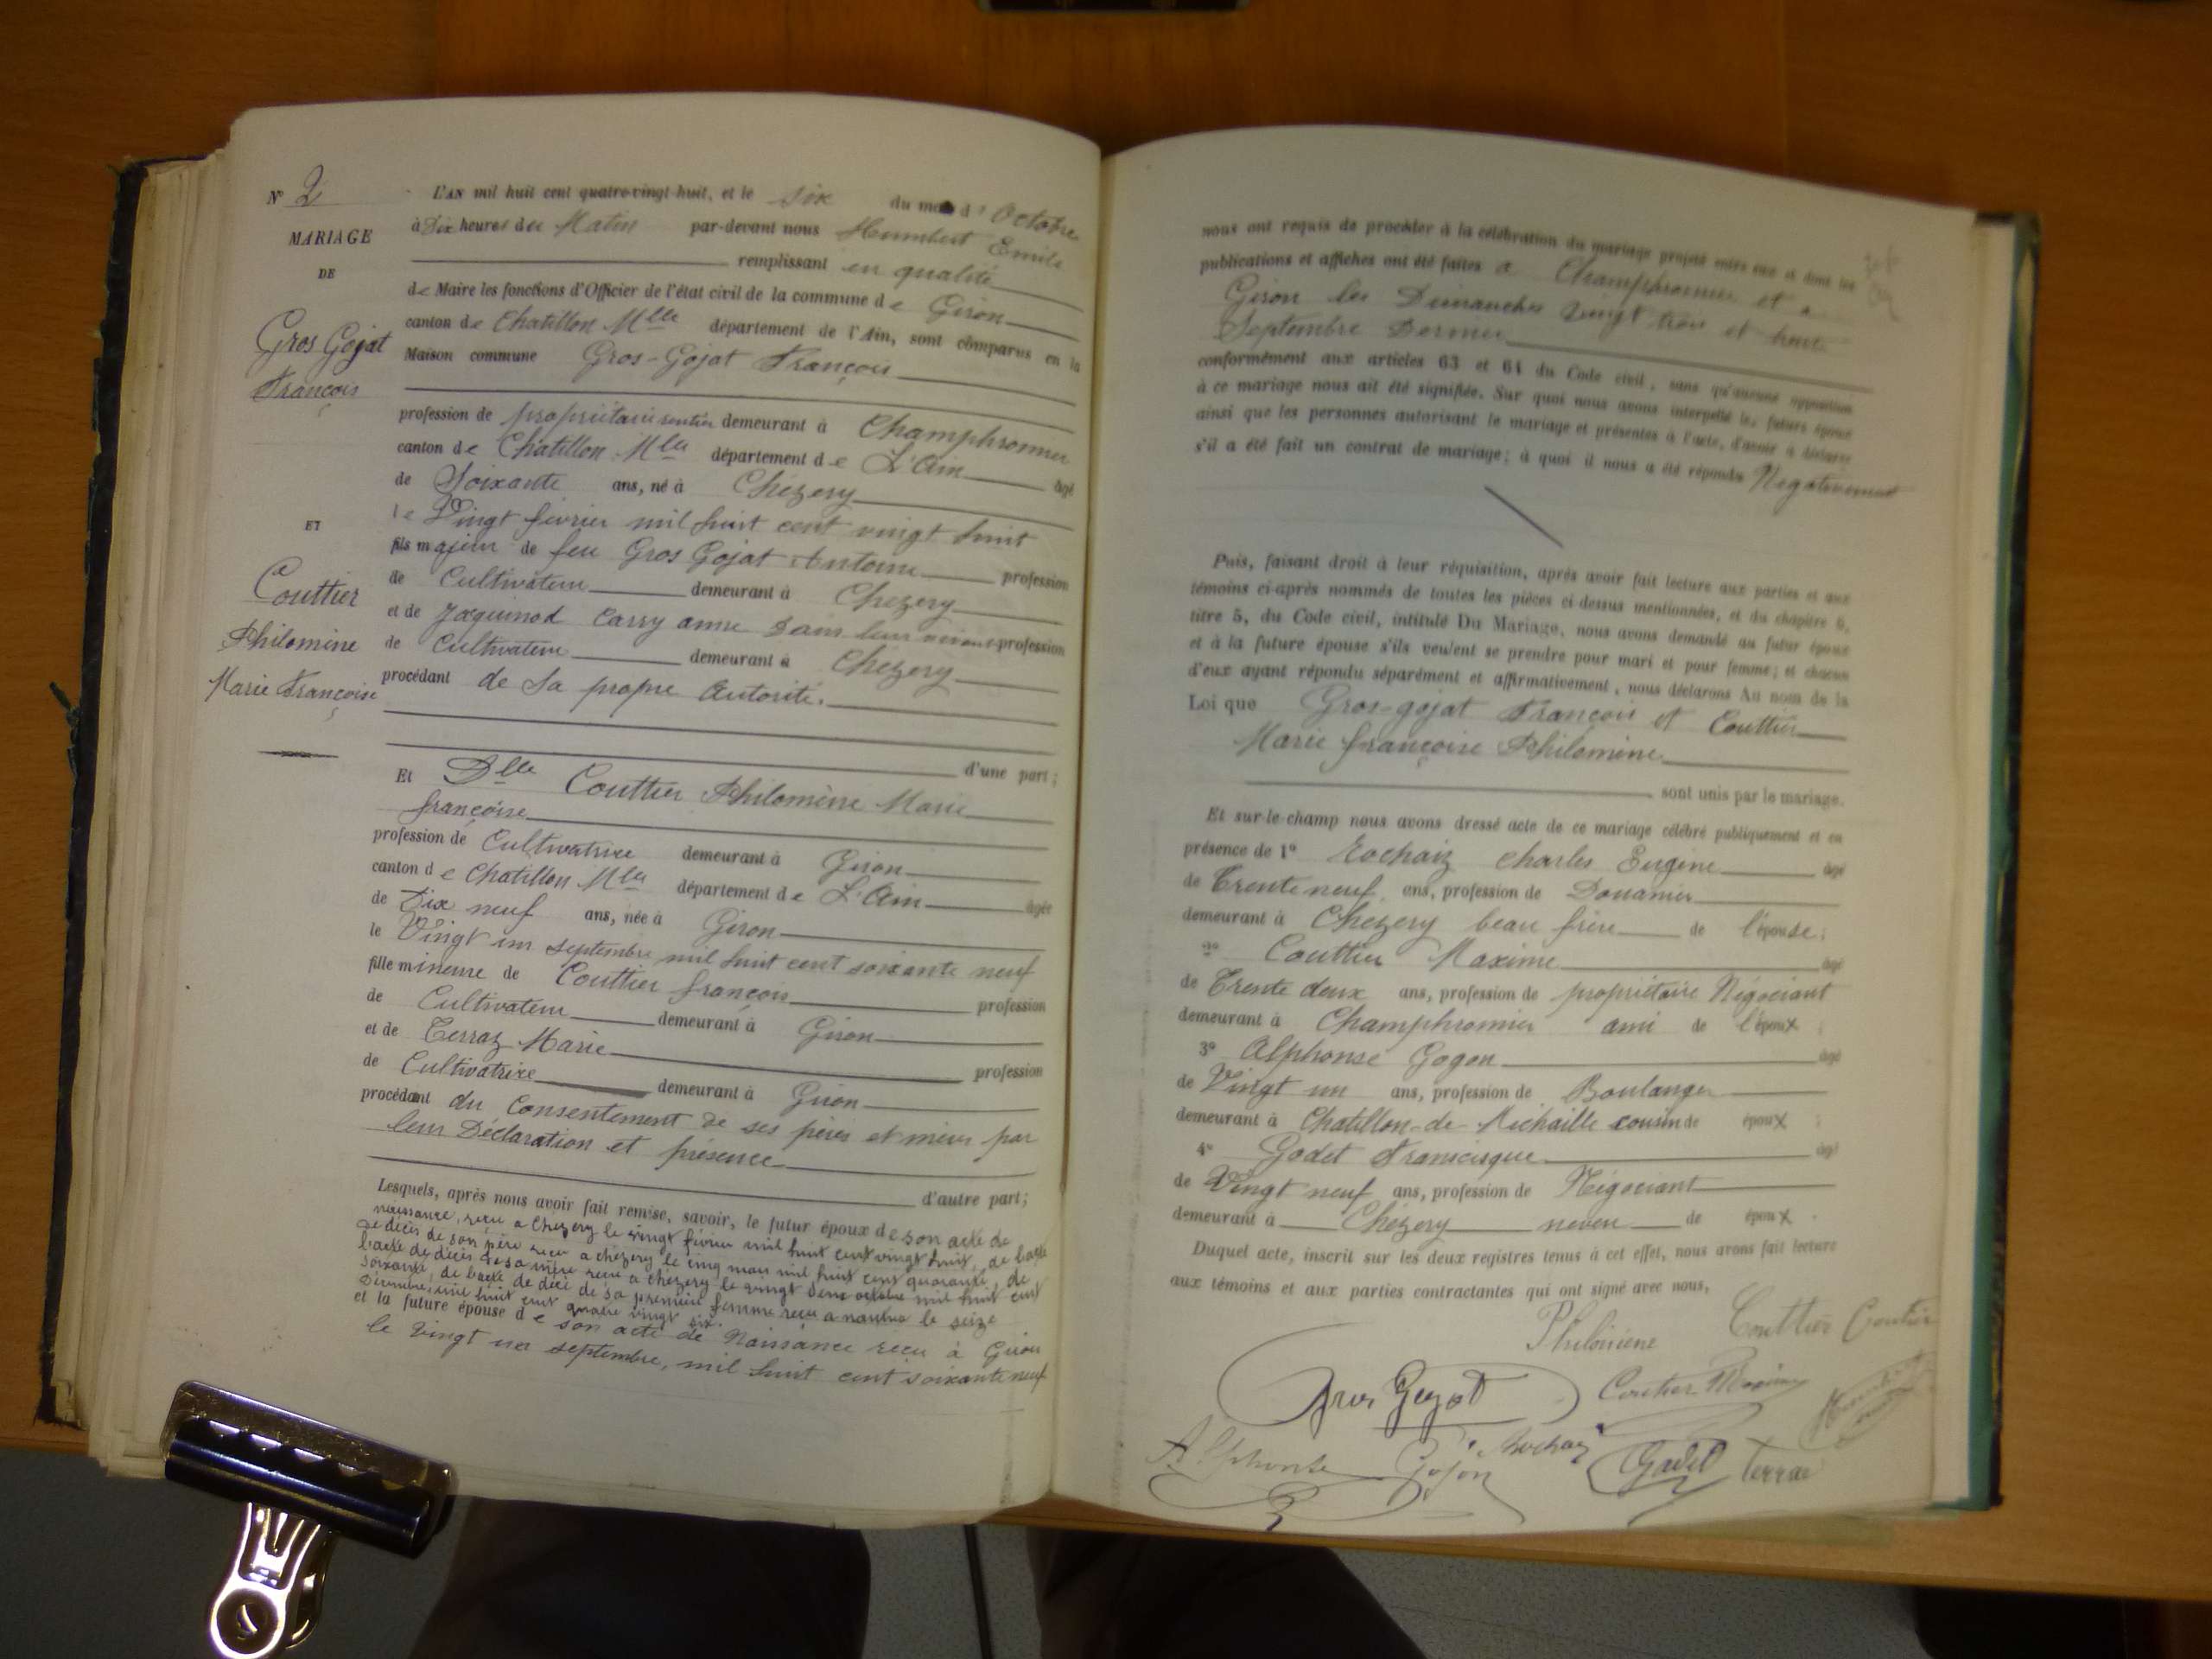 N° 2
MARIAGE
DE
Gros Gojat
François
ET
Couttier
Philomine
Marie Françoise
L'AN mil huit cent quatre-vingt-huit, et le six du mois d'Octobre
à Dix heures du Matin par-devant nous Humbert Emile
remplissant en qualité
de Maire les fonctions d'Officier de l'état civil de la commune de Giron
canton de Chatillon Mlle département de l'Ain, sont comparus en la
Maison commune Gros-Gojat François
profession de propriétaire rentier demeurant à Champfromier
canton de Chatillon Mlle département de L'Ain âgé
de Soixante ans, né à Chézery
le Vingt février mil huit cent vingt huit
fils majeur de feu Gros Gojat Antoine profession
de Cultivateur demeurant à Chézery
et de Jacquinod Carry anne Dans leur vivant profession
de Cultivateur demeurant à Chézery
procédant de Sa propre Autorité.
d'une part;
Et Dlle Couttier Philomène Marie
françoise
profession de Cultivatrice demeurant à Giron
canton de Chatillon Mlle département de L'Ain âgée
de Dix neuf ans, née à Giron
le Vingt un septembre mil huit cent soixante neuf
fille mineure de Couttier françois profession
de Cultivateur demeurant à Giron
et de Terraz Marie profession
de Cultivatrice demeurant à Giron
procédant du Consentement de ses pères et mères par
leur Déclaration et présence
d'autre part;
Lesquels, après nous avoir fait remise, savoir, le futur époux de son acte de
naissance, reçu a Chézery le vingt février mil huit cent vingt huit, de l'acte
de décès de son père reçu a chézery le cinq mars mil huit cent quarante, de
l'acte de décès de sa mère reçu a chézery le vingt deux octobre mil huit cent
soixante, de l'acte de décè de sa première femme reçu a nantua le seize
Décembre mil huit cent quatre vingt six.
et la future épouse de son acte de Naissance reçu à Giron
le Vingt un septembre, mil huit cent soixante neuf
nous ont requis de procéder à la célébration du mariage projeté entre eux et dont les
publications et affiches ont été faites a Champfromier et a
Giron les Dimanches Vingt trois et trente
Septembre Dernier
conformément aux articles 63 et 64 du Code civil, sans qu'aucune opposition
à ce mariage nous ait été signifiée. Sur quoi nous avons interpellé les futurs époux
ainsi que les personnes autorisant le mariage et présentes à l'acte, d'avoir à déclarer
s'il a été fait un contrat de mariage; à quoi il nous a été répondu Négativement
Puis, faisant droit à leur réquisition, après avoir fait lecture aux parties et aux
témoins ci-après nommés de toutes les pièces ci-dessus mentionnées, et du chapitre 6,
titre 5, du Code civil, intitulé Du Mariage, nous avons demandé au futur époux
et à la future épouse s'ils veulent se prendre pour mari et pour femme; et chacun
d'eux ayant répondu séparément et affirmativement, nous déclarons Au nom de la
Loi que Gros-gojat François et Couttier
Marie françoise Philomène
sont unis par le mariage.
Et sur-le-champ nous avons dressé acte de ce mariage célébré publiquement et en
présence de 1° Rochaix Charles Eugène âgé
de Trente neuf ans, profession de Douanier
demeurant à Chézery beau frère de l'épouse;
2° Couttier Maxime âgé
de Trente deux ans, profession de propriétaire Négociant
demeurant à Champfromier ami de l'époux;
3° Alphonse Gogon âgé
de Vingt un ans, profession de Boulanger
demeurant à Chatillon-de-Michaille cousin de époux;
4° Godet Francisque âgé
de Vingt neuf ans, profession de Négociant
demeurant à Chézery neveu de époux.
Duquel acte, inscrit sur les deux registres tenus à cet effet, nous avons fait lecture
aux témoins et aux parties contractantes qui ont signé avec nous,
Philomene Couttier Coutier
Gros Gojat Coutier Maxime
Alphonse Gojon Rochaix Godet Terraz